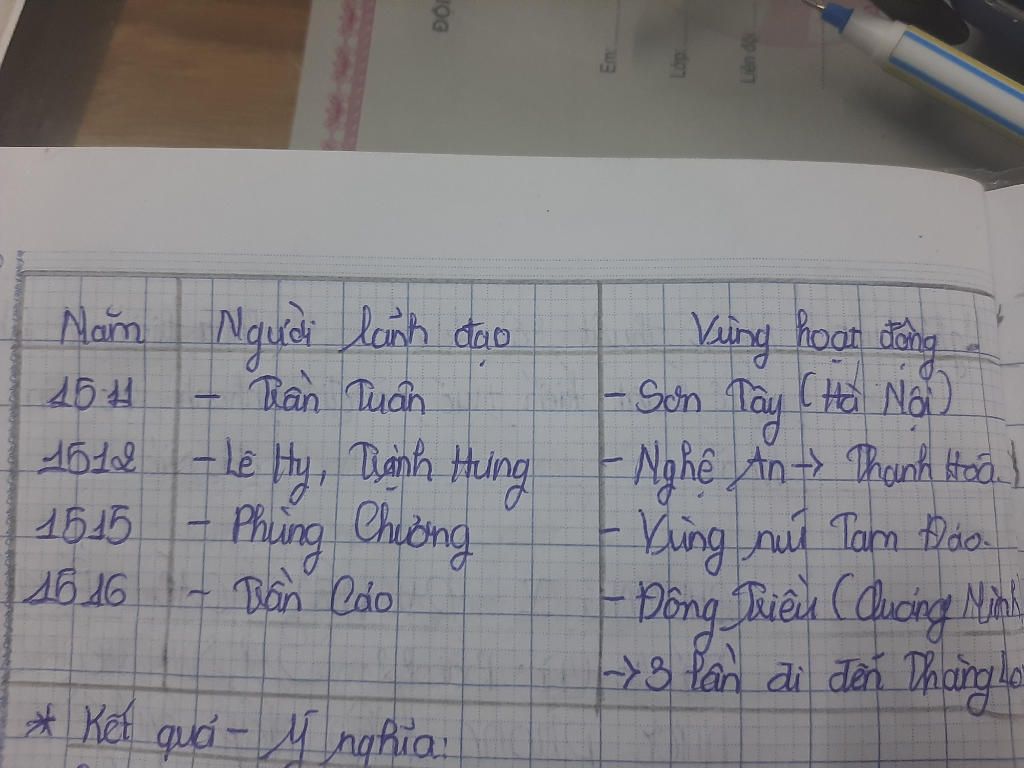 ĐỘI
Em:
Lớp:
Liên đội
Năm Người lãnh đạo Vùng hoạt động
1511 - Trần Tuân - Sơn Tây (Hà Nội)
1512 - Lê Hy, Trịnh Hưng - Nghệ An → Thanh Hoá.
1515 - Phùng Chương - Vùng núi Tam Đảo.
1516 - Trần Cảo - Đông Triều (Quảng Ninh
→ 3 lần đi đến Thăng Lo
* Kết quả - Ý nghĩa: